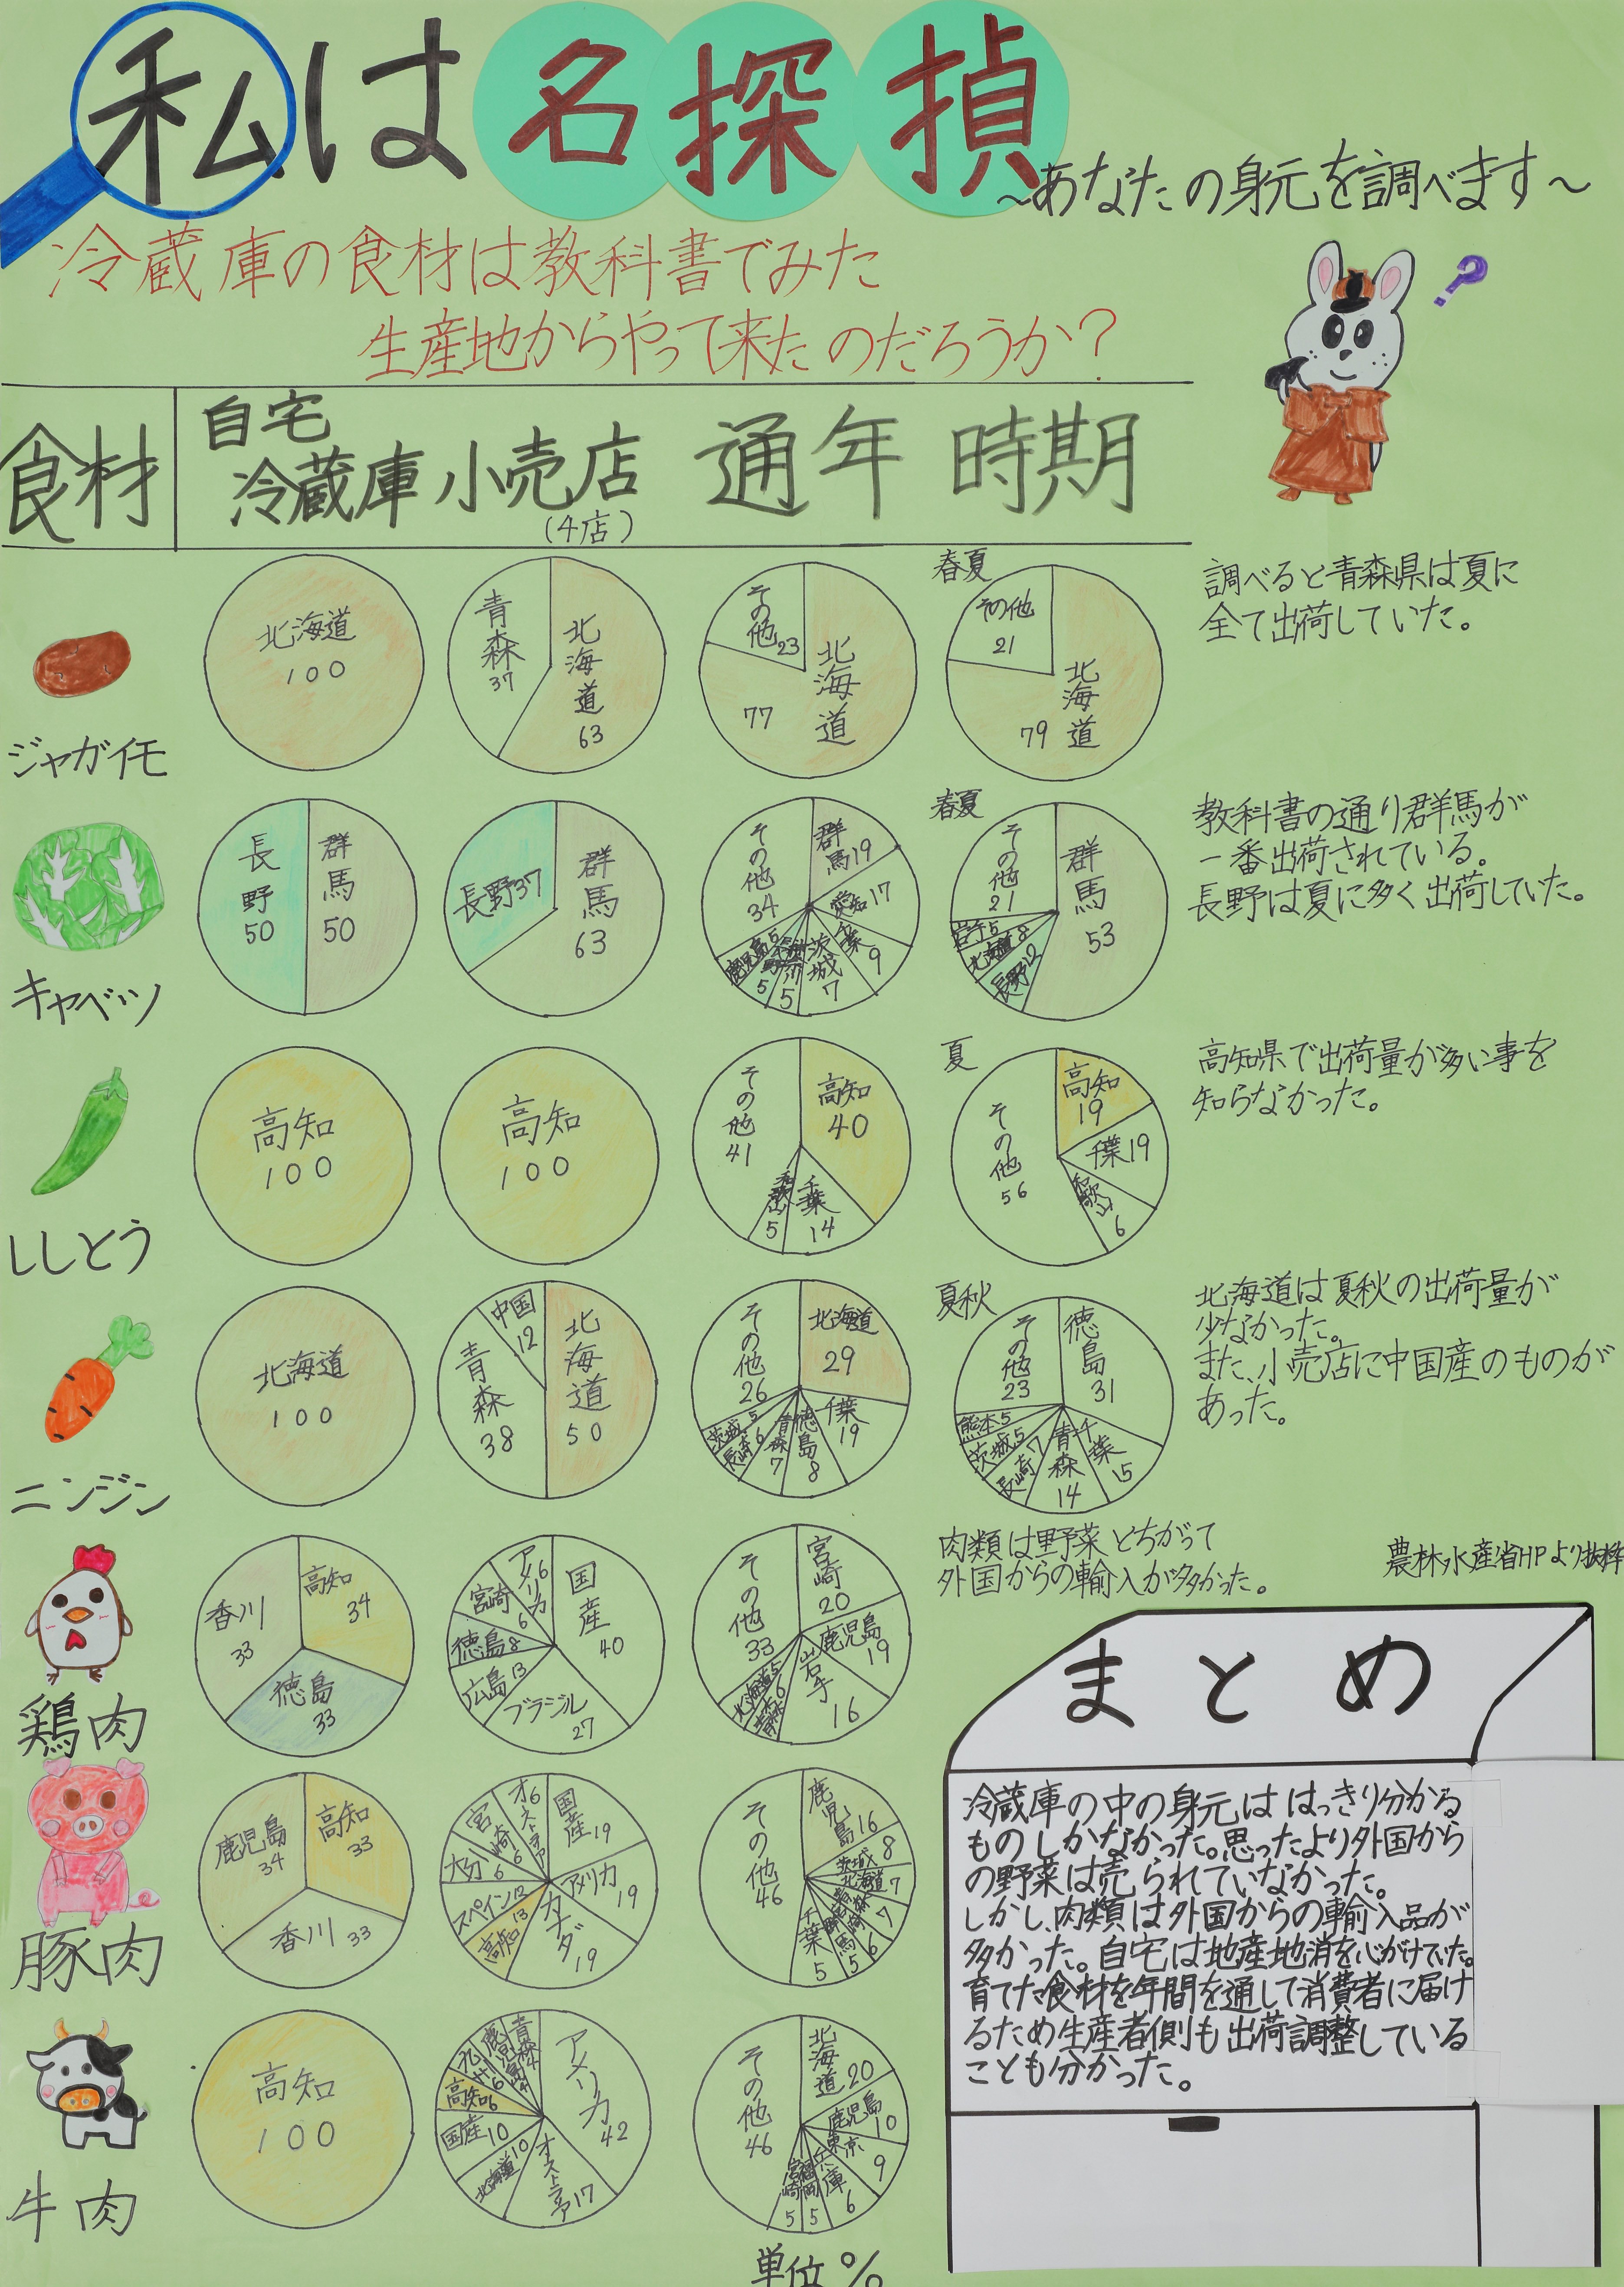 私は名探偵
~あなたの身元を調べます~
冷蔵庫の食材は教科書でみた
生産地からやって来たのだろうか?
食材
自宅
冷蔵庫
小売店
(4店)
通年
時期
ジャガイモ
北海道
100
青森
37
北海道
63
その他
23
北海道
77
春夏
その他
21
北海道
79
調べると青森県は夏に
全て出荷していた。
キャベツ
長野
50
群馬
50
長野37
群馬
63
その他
34
群馬19
愛知17
千葉
9
茨城
7
5
5
鹿児島5
春夏
その他
21
岩手5
北海道8
長野12
群馬
53
教科書の通り群馬が
一番出荷されている。
長野は夏に多く出荷していた。
ししとう
高知
100
高知
100
その他
41
高知
40
千葉
14
和歌山
5
夏
その他
56
高知
19
千葉19
和歌山
6
高知県で出荷量が多い事を
知らなかった。
ニンジン
北海道
100
中国
12
青森
38
北海道
50
その他
26
北海道
29
千葉
19
徳島
8
青森
7
長崎6
茨城5
夏秋
その他
23
徳島
31
千葉
15
青森
14
長崎7
茨城5
熊本5
北海道は夏秋の出荷量が
少なかった。
また、小売店に中国産のものが
あった。
鶏肉
香川
33
高知
34
徳島
33
アメリカ6
宮崎
6
徳島8
広島13
ブラジル
27
国産
40
その他
33
宮崎
20
鹿児島
19
岩手
16
青森6
北海道5
肉類は野菜とちがって
外国からの輸入が多かった。
農林水産省HPより抜粋
豚肉
鹿児島
34
高知
33
香川 33
オーストラリア6
宮崎6
大分
6
スペイン13
高知13
カナダ
19
アメリカ
19
国産19
その他
46
鹿児島16
茨城8
北海道7
7
6
5
千葉
5
牛肉
高知
100
青森4
鹿児島4
九州6
高知6
国産10
北海道10
オーストラリア17
アメリカ
42
その他
46
北海道20
鹿児島
10
東京
9
兵庫
6
福岡
5
宮崎
5
単位%
まとめ
冷蔵庫の中の身元ははっきり分かる
ものしかなかった。思ったより外国から
の野菜は売られていなかった。
しかし、肉類は外国からの輸入品が
多かった。自宅は地産地消を心がけていた。
育てた食材を年間を通して消費者に届け
るため生産者側も出荷調整している
ことも分かった。